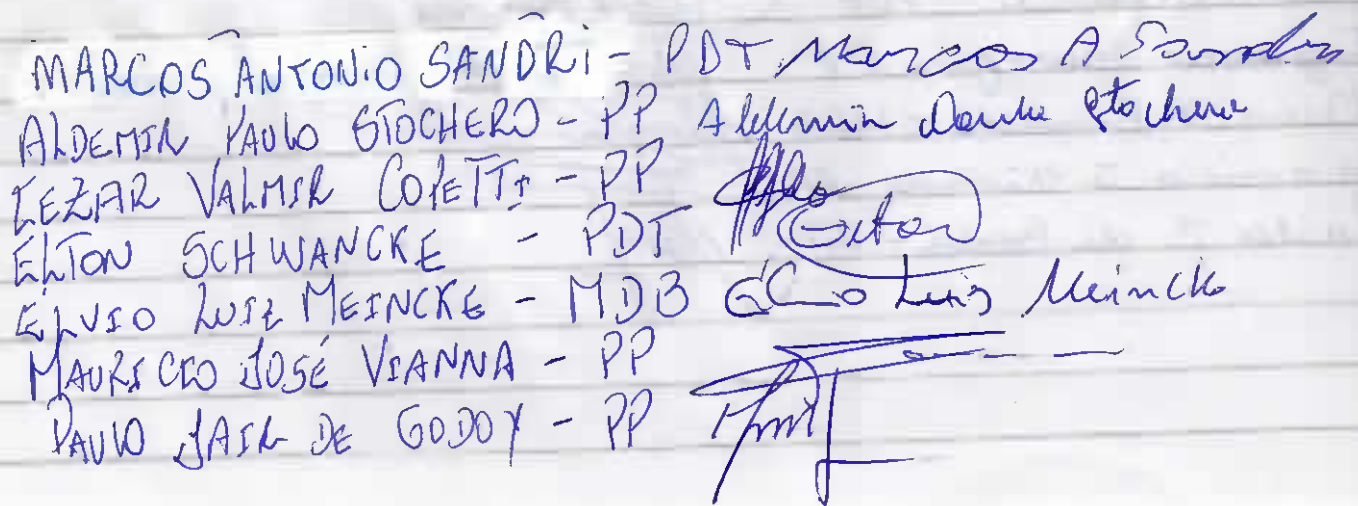 MARCOS ANTONIO SANDRI - PDT Marcos A Sandri
ALDEMIR PAULO STOCHERO - PP Aldemir Paulo Stochero
CEZAR VALMIR COPETTI - PP
ELTON SCHWANCKE - PDT Elton
ÉLVIO LUIZ MEINCKE - MDB Élvio Luiz Meincke
MAURICIO JOSÉ VIANNA - PP
PAULO JAIR DE GODOY - PP